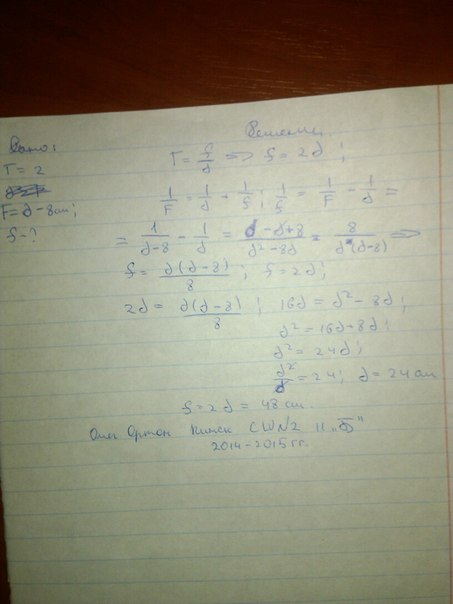 Дано:
Решение.
Г = 2
F = d - 8 см;
f - ?
Г = f/d => f = 2d ;
1/F = 1/d + 1/f ; 1/f = 1/F - 1/d =
= 1/(d-8) - 1/d = (d - d + 8)/(d² - 8d) = 8/(d(d-8)) =>
f = d(d-8)/8 ; f = 2d ;
2d = d(d-8)/8 ; 16d = d² - 8d ;
d² = 16d + 8d ;
d² = 24d ;
d²/d = 24 ; d = 24 см
f = 2d = 48 см.
Олег Минск СШ №2 11 „Б"
2014-2015 гг.